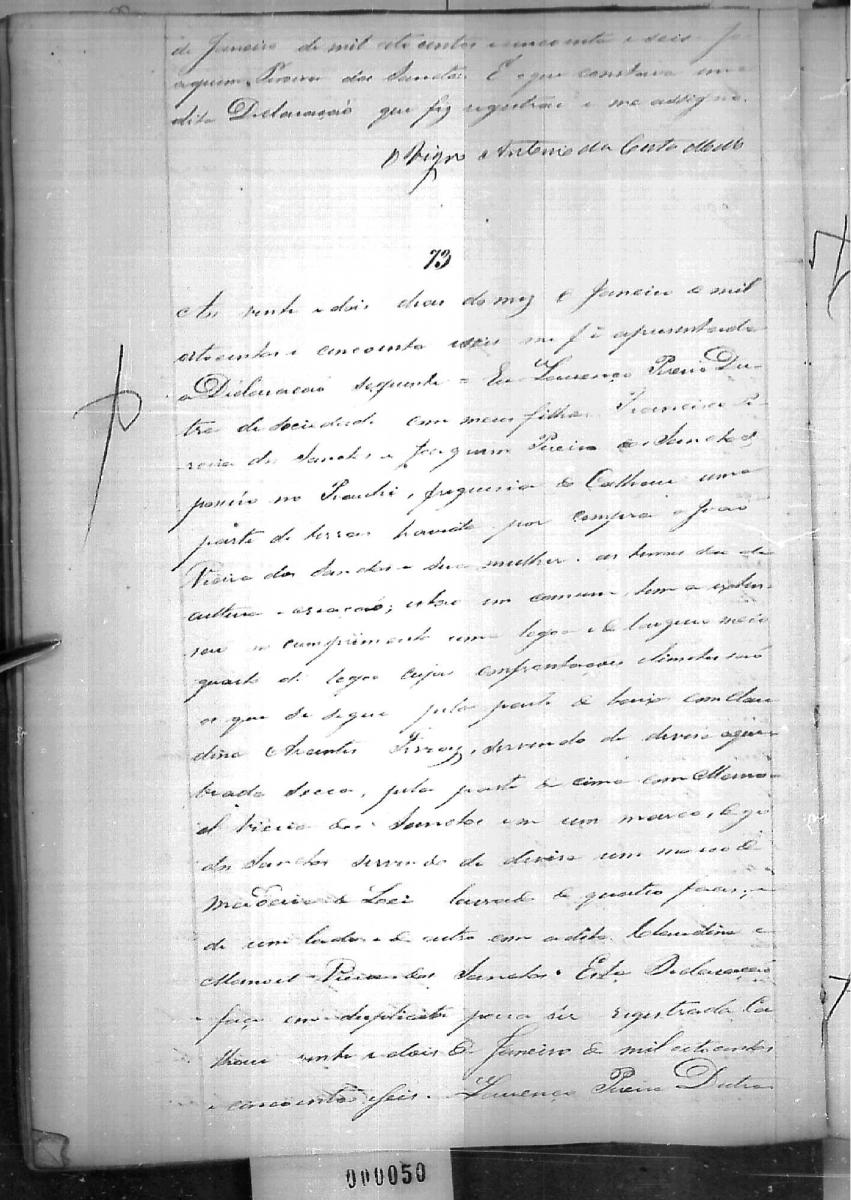 de Janeiro de mil oito centos e cincoenta e seis Jo
aquim Pereira dos Sanctos. E o que constava em a
dita Declaração que fiz registrar e me assigno.
O Vigro Antonio da Costa
73
Aos vinte e dois dias do mez de Janeiro de mil
oitocentos e cincoenta e seis me foi apresentada
a Declaração seguinte = Eu Lourenço Pereira Du
tra de sociedade com meus filhos Francisco Pe
reira dos Sanctos e Joaquim Pereira dos Sanctos
possúo no, freguesia de Calhau uma
parte de terras havida por compra a João
Vieira dos Sanctos e sua mulher, as terras são de
cultura e creação, estão em comum, tem a exten
são no cumprimento uma legoa e de largura meio
quarto de legoa cujas confrontações e limites são
os que se segue pela parte de baixo com Clau
dina Arantes Ferraz, servindo de devisa a que
brada secca, pela parte de cima com Mano
el Vieira dos Sanctos em um marco,
dos Sanctos servindo de devisa um marco de
madeira de Lei lavrado de quatro faces, e
de um lado e de outro com a dita Claudina e
Manoel Vieira dos Sanctos. Esta Declaração
faço em duplicata para ser registrada Ca
lhau vinte e dois de Janeiro de mil oitocentos
e cincoenta e seis. Lourenço Pereira Dutra
000050